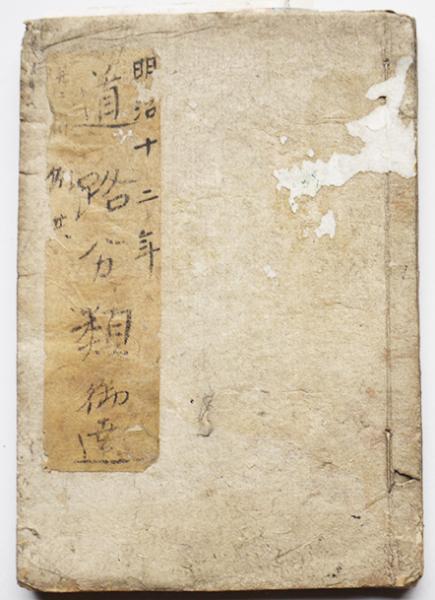 明治十二年
道路分類御達